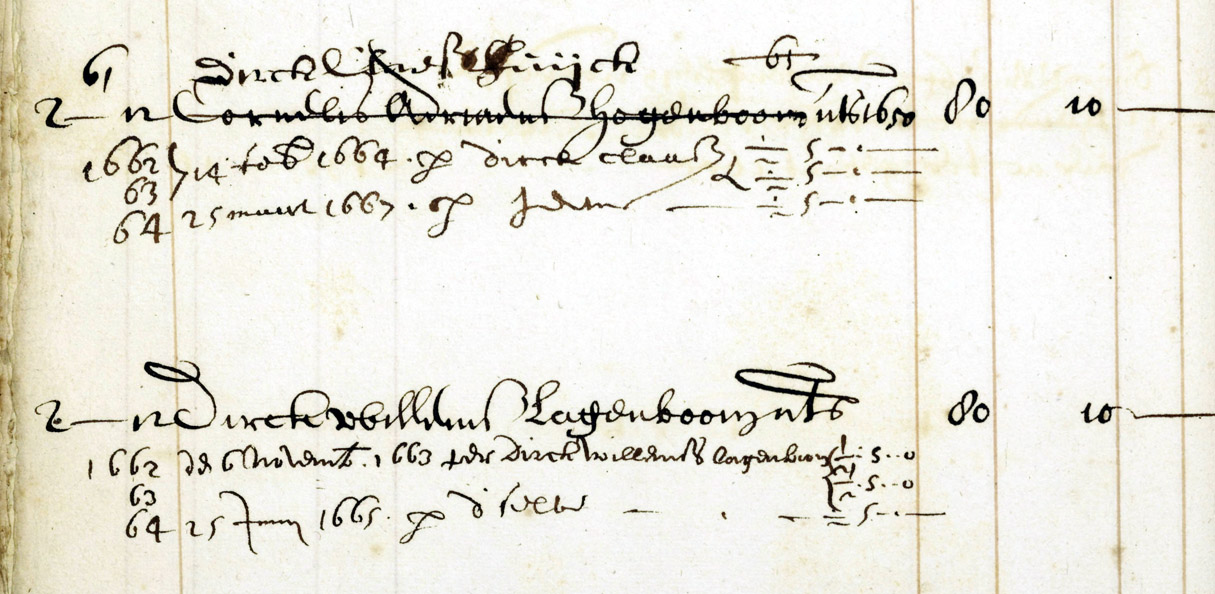 61 Dirck kuijck 61
2 — 12 Cornelis Adriaens hogenboom uts 1650 80 10 —
1662 14 feb 1664 . p dirck claess — 5 — . —
63 — 5 — . —
64 25 maart 1667 . p Idem — 5 — . —
2 — 12 Dirck willems Lagenboom uts 80 10 —
1662 den 6 Novemb. 1663 per Dirck willemss lagenboom 5 . . 0
63 5 . . 0
64 25 Juny 1665 . p d selve — . — 5 — . —